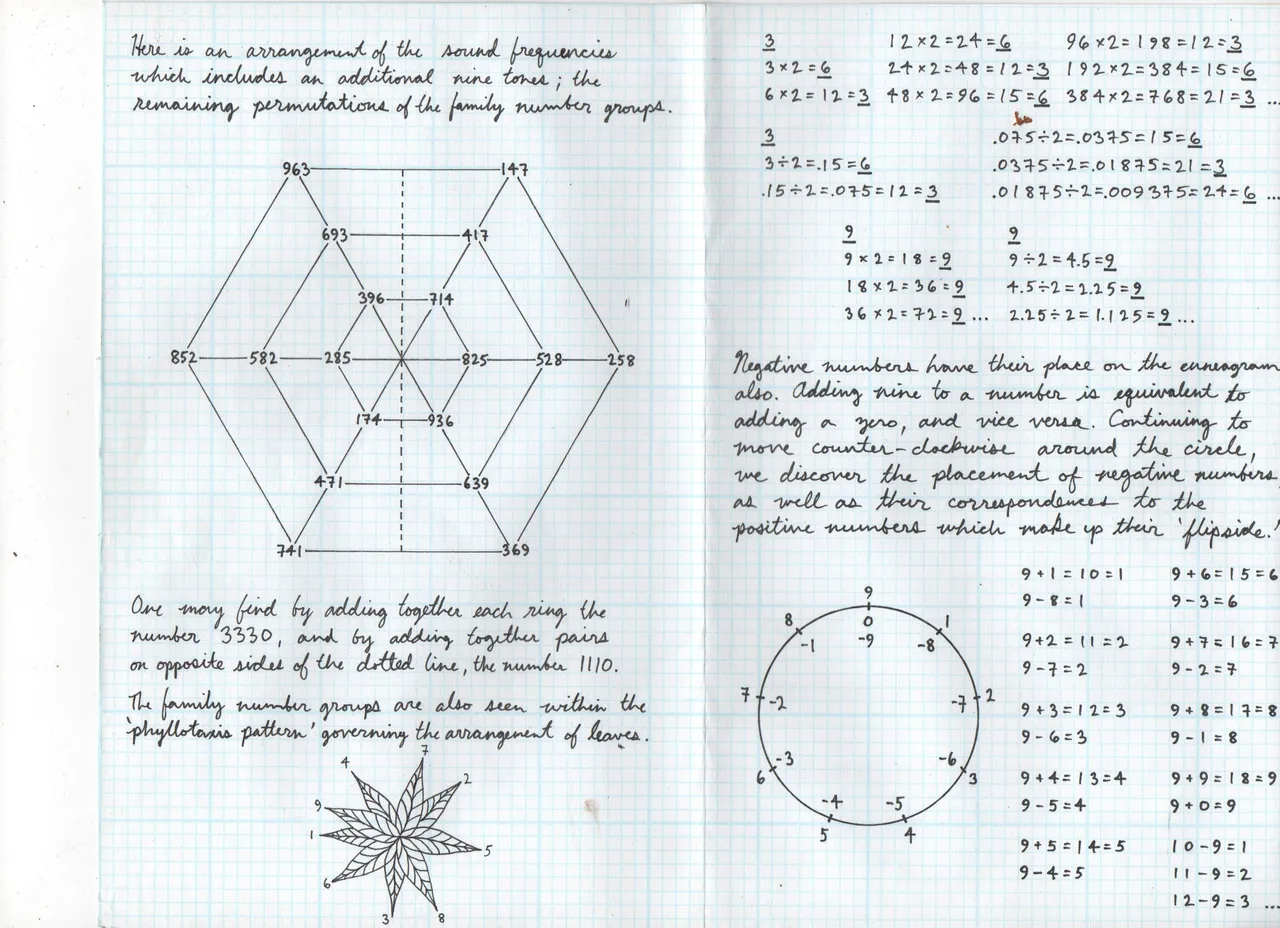 Here is an arrangement of the sound frequencies
which includes an additional nine tones; the
remaining permutations of the family number groups.
963 147
693 417
396 714
852 582 285 825 528 258
174 936
471 639
741 369
One may find by adding together each ring the
number 3330, and by adding together pairs
on opposite sides of the dotted line, the number 1110.
The family number groups are also seen within the
'phyllotaxis pattern' governing the arrangement of leaves.
7
4 2
9
1 5
6
3 8
3 12×2=24=6 96×2=198=12=3
3×2=6 24×2=48=12=3 192×2=384=15=6
6×2=12=3 48×2=96=15=6 384×2=768=21=3 ...
3 .075÷2=.0375=15=6
3÷2=.15=6 .0375÷2=.01875=21=3
.15÷2=.075=12=3 .01875÷2=.009375=24=6 ...
9 9
9×2=18=9 9÷2=4.5=9
18×2=36=9 4.5÷2=2.25=9
36×2=72=9 ... 2.25÷2=1.125=9 ...
Negative numbers have their place on the enneagram
also. Adding nine to a number is equivalent to
adding a zero, and vice versa. Continuing to
move counter-clockwise around the circle,
we discover the placement of negative numbers,
as well as their correspondences to the
positive numbers which make up their 'flipside.'
9
8 0 1
-1 -9 -8
7 -2 -7 2
-3 -6
6 3
-4 -5
5 4
9+1=10=1 9+6=15=6
9-8=1 9-3=6
9+2=11=2 9+7=16=7
9-7=2 9-2=7
9+3=12=3 9+8=17=8
9-6=3 9-1=8
9+4=13=4 9+9=18=9
9-5=4 9+0=9
9+5=14=5 10-9=1
9-4=5 11-9=2
12-9=3 ...